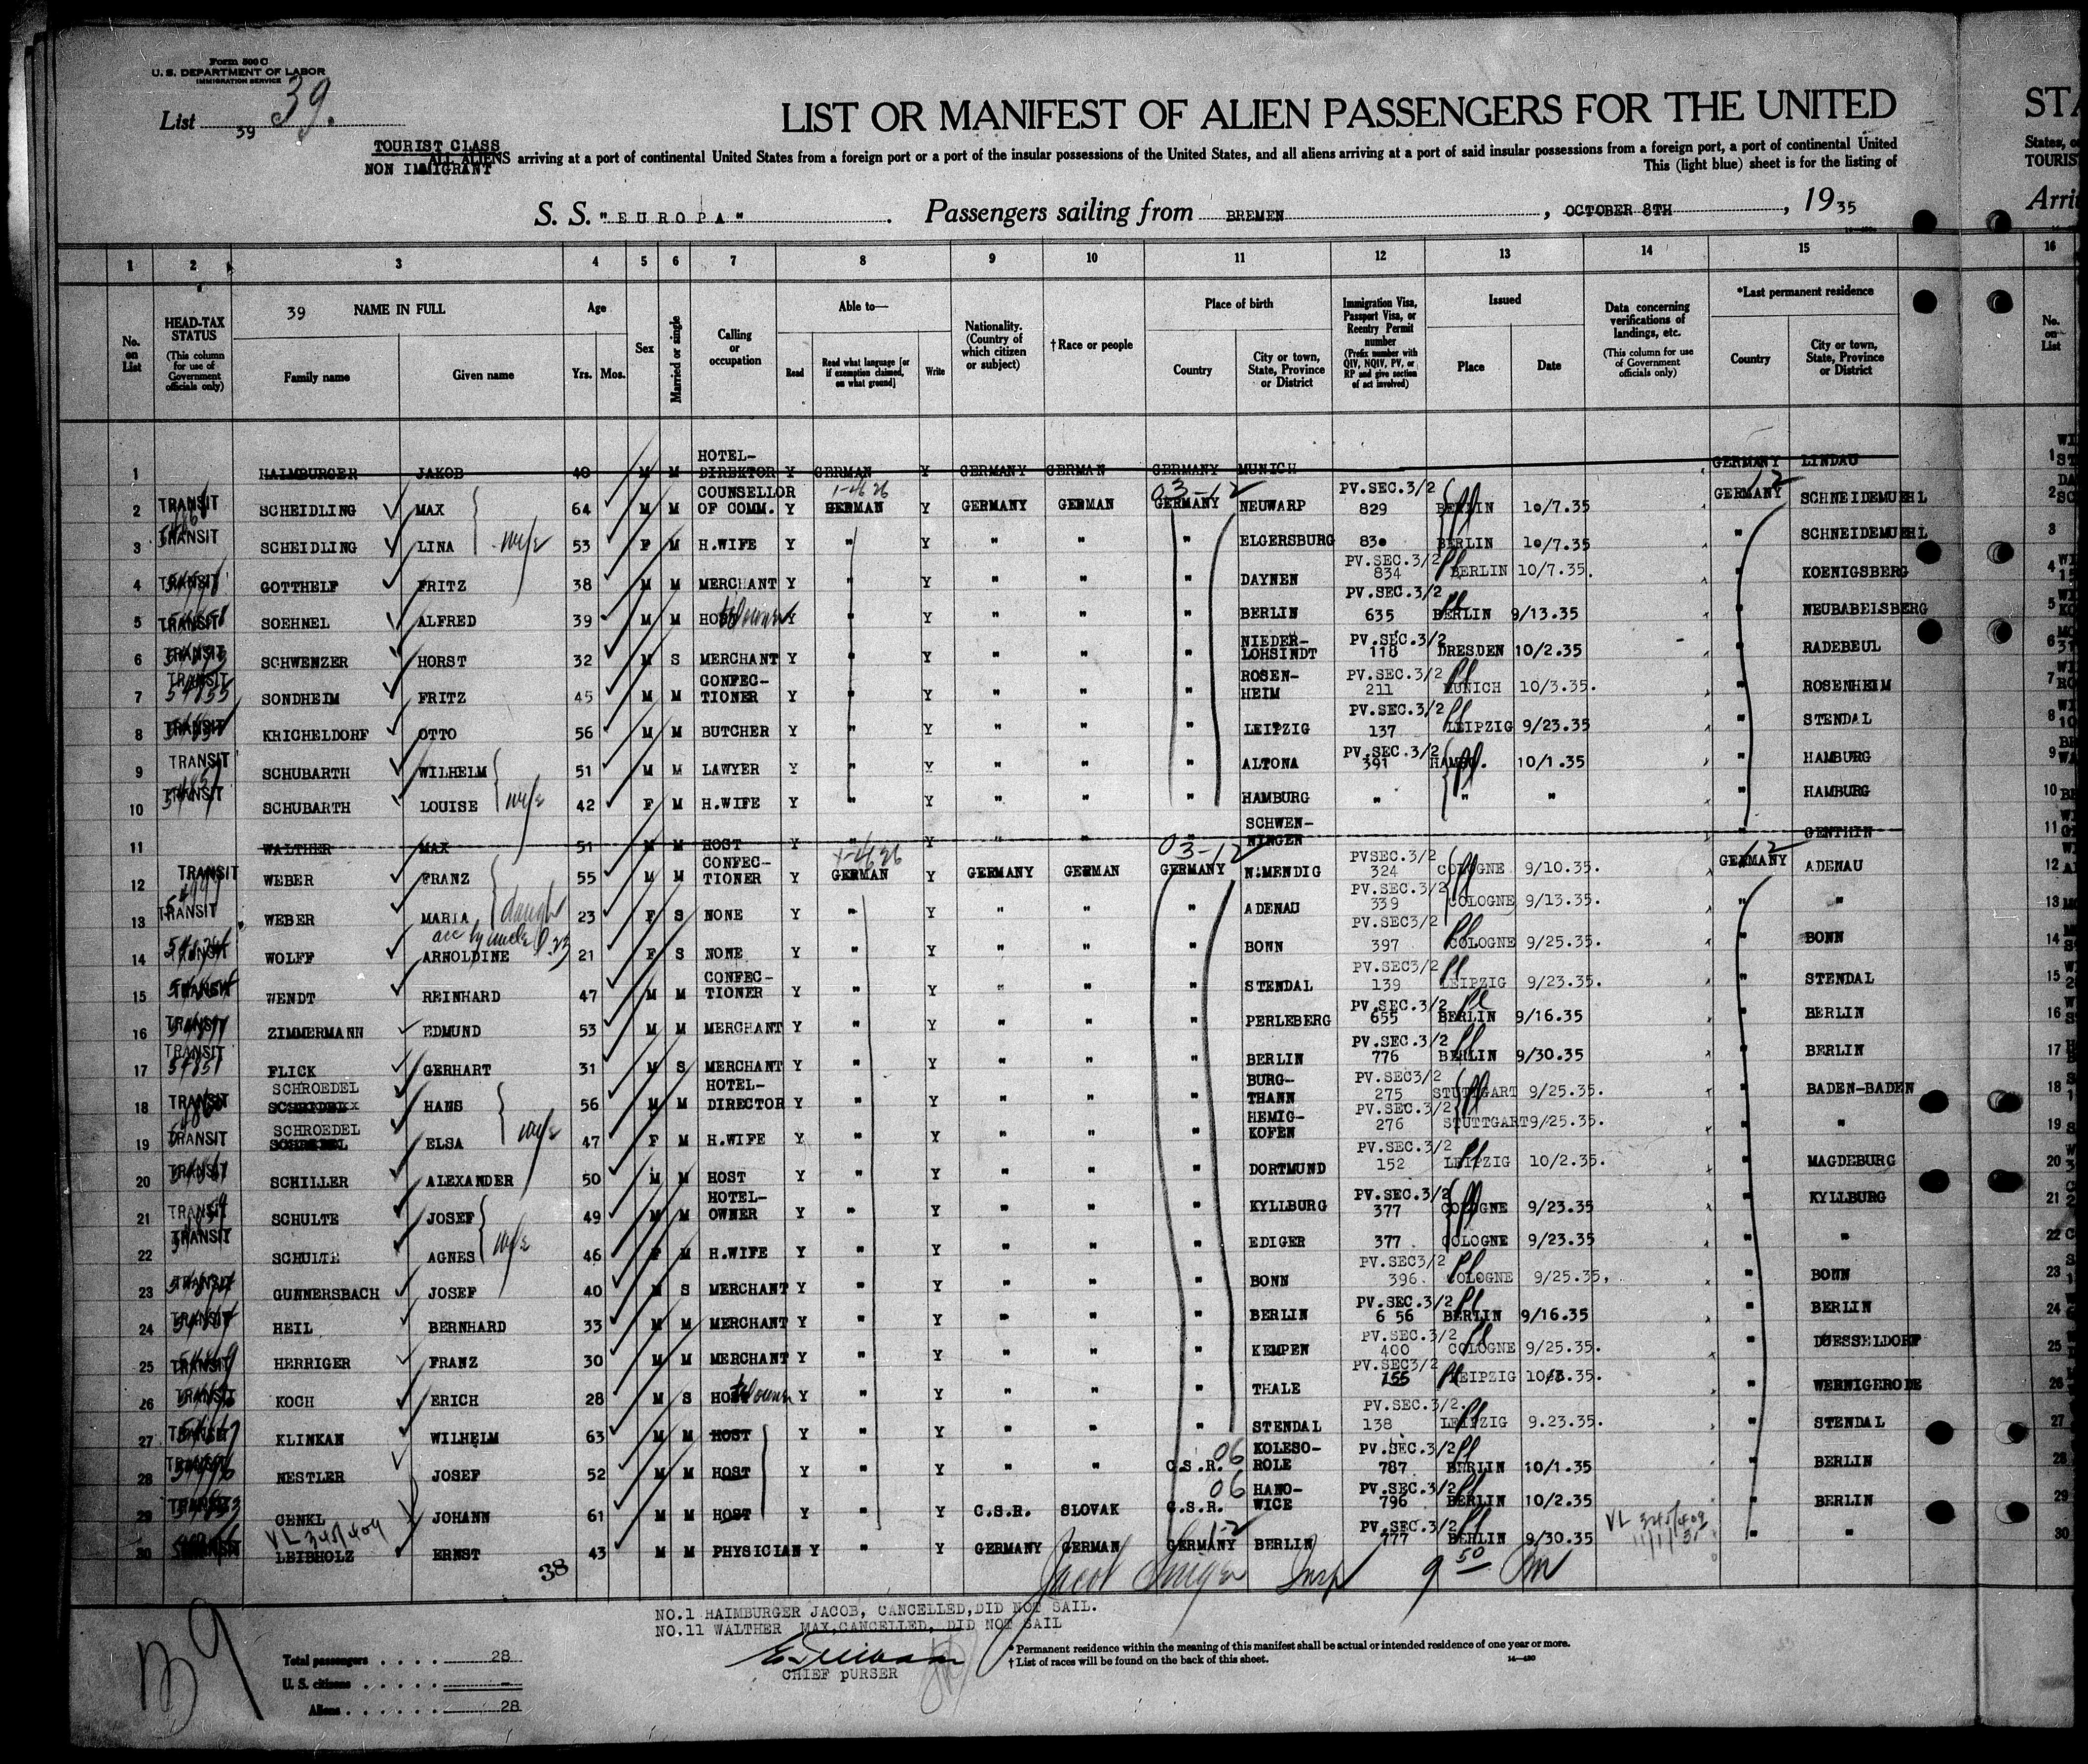 Form 500 C
U. S. DEPARTMENT OF LABOR
IMMIGRATION SERVICE
List 39 39.
LIST OR MANIFEST OF ALIEN PASSENGERS FOR THE UNITED
STA
TOURIST CLASS
NON IMMIGRANT
ALL ALIENS arriving at a port of continental United States from a foreign port or a port of the insular possessions of the United States, and all aliens arriving at a port of said insular possessions from a foreign port, a port of continental United
States, o
This (light blue) sheet is for the listing of
TOURIS
S. S. "EUROPA". Passengers sailing from BREMEN, OCTOBER 8TH, 19 35
Arri
1 2 3 4 5 6 7 8 9 10 11 12 13 14 15 16
No. on List
HEAD-TAX STATUS (This column for use of Government officials only)
39 NAME IN FULL
Family name Given name
Age
Yrs. Mos.
Sex
Married or single
Calling or occupation
Able to—
Read Read what language [or if exemption claimed, on what ground] Write
Nationality. (Country of which citizen or subject)
†Race or people
Place of birth
Country City or town, State, Province or District
Immigration Visa, Passport Visa, or Reentry Permit number (Prefix number with QIV, NQIV, PV, or RP and give section of act involved)
Issued
Place Date
Data concerning verifications of landings, etc. (This column for use of Government officials only)
*Last permanent residence
Country City or town, State, Province or District
No. on List
1 HAIMBURGER JAKOB 40 M M HOTEL-DIREKTOR Y GERMAN Y GERMANY GERMAN GERMANY MUNICH GERMANY LINDAU 1
2 TRANSIT SCHEIDLING MAX 64 M M COUNSELLOR OF COMM. Y GERMAN Y GERMANY GERMAN 03-12 GERMANY NEUWARP PV.SEC.3/2 829 BERLIN 10/7.35 12 GERMANY SCHNEIDEMUEHL 2
3 TRANSIT SCHEIDLING LINA wife 53 F M H.WIFE Y " Y " " " ELGERSBURG 830 BERLIN 10/7.35 " SCHNEIDEMUEHL 3
4 TRANSIT GOTTHELF FRITZ 38 M M MERCHANT Y " Y " " " DAYNEN PV.SEC.3/2 834 BERLIN 10/7.35. " KOENIGSBERG 4
5 TRANSIT SOEHNEL ALFRED 39 M M HOST Y " Y " " " BERLIN PV.SEC.3/2 635 BERLIN 9/13.35 " NEUBABELSBERG 5
6 TRANSIT SCHWENZER HORST 32 M S MERCHANT Y " Y " " " NIEDER-LOHSINDT PV.SEC.3/2 118 DRESDEN 10/2.35 " RADEBEUL 6
7 TRANSIT 54855 SONDHEIM FRITZ 45 M M CONFEC-TIONER Y " Y " " " ROSEN-HEIM PV.SEC.3/2 211 MUNICH 10/3.35. " ROSENHEIM 7
8 TRANSIT KRICHELDORF OTTO 56 M M BUTCHER Y " Y " " " LEIPZIG PV.SEC.3/2 137 LEIPZIG 9/23.35 " STENDAL 8
9 TRANSIT SCHUBARTH WILHELM 51 M M LAWYER Y " Y " " " ALTONA PV.SEC.3/2 391 HAMBG. 10/1.35 " HAMBURG 9
10 TRANSIT SCHUBARTH LOUISE wife 42 F M H.WIFE Y " Y " " " HAMBURG " " " " HAMBURG 10
11 WALTHER MAX 51 M M HOST Y " Y " " " SCHWEN-NINGEN " GENTHIN 11
12 TRANSIT WEBER FRANZ 55 M M CONFEC-TIONER Y GERMAN Y GERMANY GERMAN 03-12 GERMANY N.MENDIG PVSEC.3/2 324 COLOGNE 9/10.35. 12 GERMANY ADENAU 12
13 TRANSIT WEBER MARIA daugh 23 F S NONE Y " Y " " " ADENAU PV.SEC.3/2 339 COLOGNE 9/13.35. " " 13
14 TRANSIT WOLFF acc by uncle ARNOLDINE 21 F S NONE Y " Y " " " BONN PV.SEC3/2 397 COLOGNE 9/25.35. " BONN 14
15 TRANSIT WENDT REINHARD 47 M M CONFEC-TIONER Y " Y " " " STENDAL PV.SEC3/2 139 LEIPZIG 9/23.35. " STENDAL 15
16 TRANSIT ZIMMERMANN EDMUND 53 M M MERCHANT Y " Y " " " PERLEBERG PV.SEC.3/2 655 BERLIN 9/16.35 " BERLIN 16
17 TRANSIT 54851 FLICK GERHART 31 M S MERCHANT Y " Y " " " BERLIN PV.SEC.3/2 776 BERLIN 9/30.35 " BERLIN 17
18 TRANSIT SCHROEDEL HANS 56 M M HOTEL-DIRECTOR Y " Y " " " BURG-THANN PV.SEC3/2 275 STUTTGART 9/25.35. " BADEN-BADEN 18
19 TRANSIT SCHROEDEL ELSA wife 47 F M H.WIFE Y " Y " " " HEMIG-KOFEN PV.SEC.3/2 276 STUTTGART 9/25.35. " " 19
20 TRANSIT SCHILLER ALEXANDER 50 M M HOST Y " Y " " " DORTMUND PV.SEC.3/2 152 LEIPZIG 10/2.35. " MAGDEBURG 20
21 TRANSIT SCHULTE JOSEF 49 M M HOTEL-OWNER Y " Y " " " KYLLBURG PV.SEC.3/2 377 COLOGNE 9/23.35 " KYLLBURG 21
22 TRANSIT SCHULTE AGNES wife 46 F M H.WIFE Y " Y " " " EDIGER 377 COLOGNE 9/23.35 " " 22
23 TRANSIT GUNNERSBACH JOSEF 40 M S MERCHANT Y " Y " " " BONN PV.SEC3/2 396 COLOGNE 9/25.35, " BONN 23
24 TRANSIT HEIL BERNHARD 33 M M MERCHANT Y " Y " " " BERLIN PV.SEC.3/2 6 56 BERLIN 9/16.35 " BERLIN 24
25 TRANSIT HERRIGER FRANZ 30 M M MERCHANT Y " Y " " " KEMPEN PV.SEC.3/2 400 COLOGNE 9/25.35. " DUESSELDORF 25
26 TRANSIT KOCH ERICH 28 M S HOST Y " Y " " " THALE PV.SEC3/2 155 LEIPZIG " WERNIGERODE 26
27 TRANSIT KLINKAN WILHELM 63 M M HOST Y " Y " " " STENDAL PV.SEC.3/2. 138 LEIPZIG 9.23.35. " STENDAL 27
28 TRANSIT NESTLER JOSEF 52 M M HOST Y " Y " " 06 C.S.R. KOLESO-ROLE PV.SEC.3/2 787 BERLIN 10/1.35 " BERLIN 28
29 TRANSIT CENKL JOHANN 61 M M HOST Y " Y C.S.R. SLOVAK 06 C.S.R. HANO-WICE PV.SEC.3/2 796 BERLIN 10/2.35 " BERLIN 29
30 VL 345/404 LEIBHOLZ ERNST 43 M M PHYSICIAN Y " Y GERMANY GERMAN GERMANY BERLIN PV.SEC.3/2 777 BERLIN 9/30.35 VL 345/402 " " 30
38
9 50
NO.1 HAIMBURGER JACOB, CANCELLED,DID NOT SAIL.
NO.11 WALTHER MAX,CANCELLED, DID NOT SAIL
CHIEF pURSER
* Permanent residence within the meaning of this manifest shall be actual or intended residence of one year or more.
† List of races will be found on the back of this sheet.
14—430
Total passengers . . . . . 28
U. S. citizens . . . . . . –
Aliens . . . . . . . 28